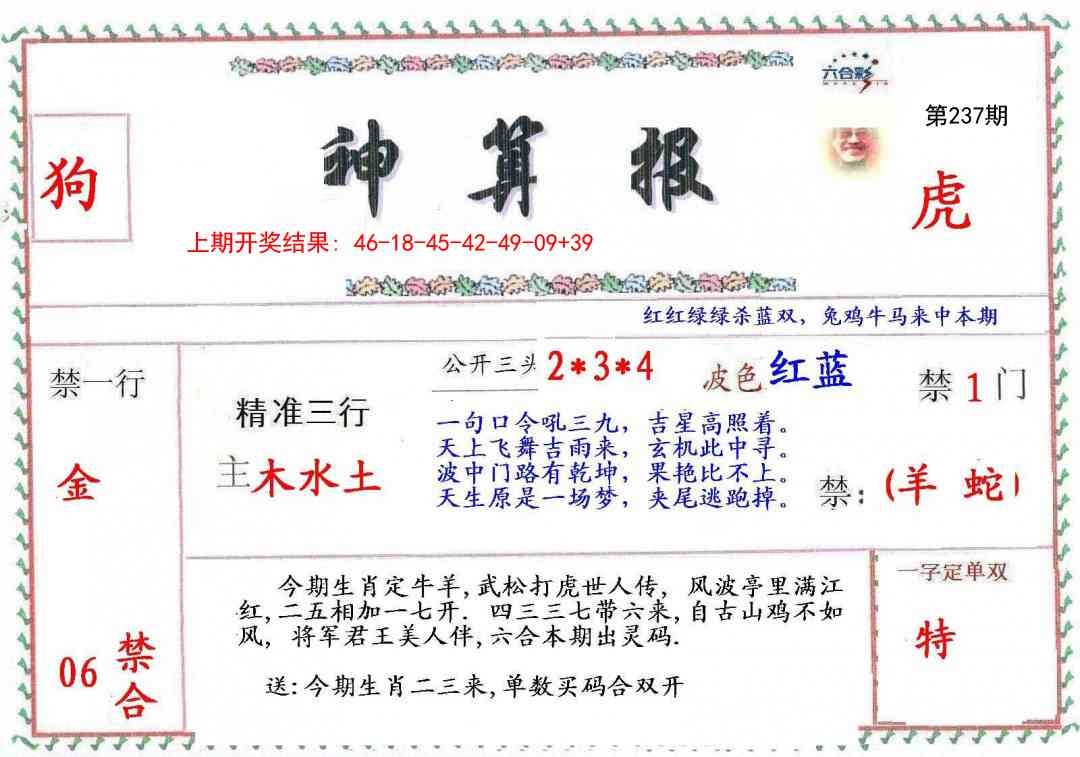 六合彩
第237期
神算报
狗
虎
上期开奖结果：46-18-45-42-49-09+39
红红绿绿杀蓝双，兔鸡牛马来中本期
禁一行
金
06 禁合
精准三行
主木水土
公开三头 2*3*4
波色 红蓝
一句口令吼三九，吉星高照着。
天上飞舞吉雨来，玄机此中寻。
波中门路有乾坤，果艳比不上。
天生原是一场梦，夹尾逃跑掉。
禁1门
禁：(羊 蛇)
今期生肖定牛羊,武松打虎世人传，风波亭里满江
红,二五相加一七开．四三三七带六来,自古山鸡不如
风，将军君王美人伴,六合本期出灵码.
送:今期生肖二三来,单数买码合双开
一字定单双
特